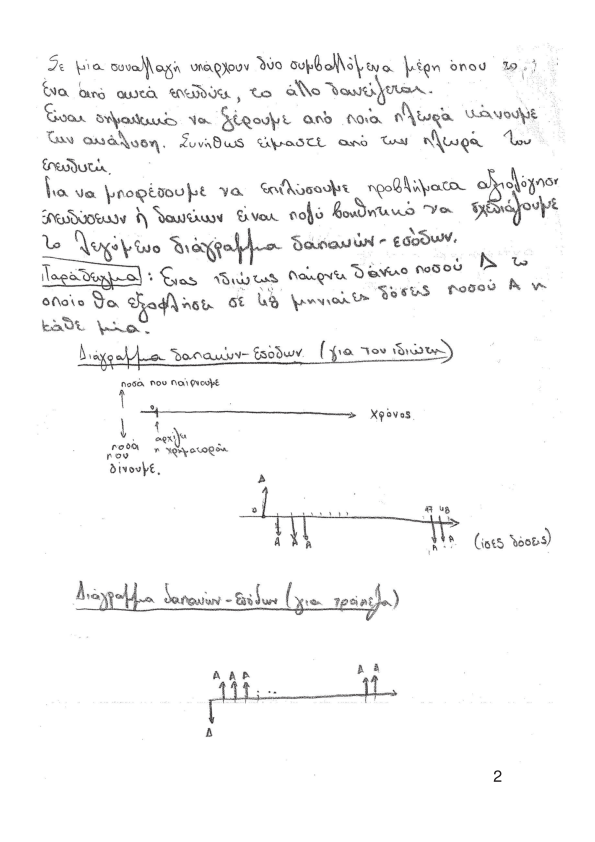 Σε μία συναλλαγή υπάρχουν δύο συμβαλλόμενα μέρη όπου το
ένα από αυτά επενδύει, το άλλο δανείζεται.
Είναι σημαντικό να ξέρουμε από ποιά πλευρά κάνουμε
την ανάλυση. Συνήθως είμαστε από την πλευρά του
επενδυτή.
Για να μπορέσουμε να επιλύσουμε προβλήματα αξιολόγησης
επενδύσεων ή δανείων είναι πολύ βοηθητικό να σχεδιάζουμε
το λεγόμενο διάγραμμα δαπανών-εσόδων.
Παράδειγμα: Ένας ιδιώτης παίρνει δάνειο ποσού Δ το
οποίο θα εξοφλήσει σε 48 μηνιαίες δόσεις ποσού Α η
κάθε μία.
Διάγραμμα δαπανών-εσόδων (για τον ιδιώτη)
ποσά που παίρνουμε
0
Χρόνος
ποσά
που
δίνουμε.
αρχίζει
η χρηματοροή
Δ
0
47 48
Α Α Α
Α Α
(ίσες δόσεις)
Διάγραμμα δαπανών-εσόδων (για τράπεζα)
Α Α Α ... Α Α
Δ
2